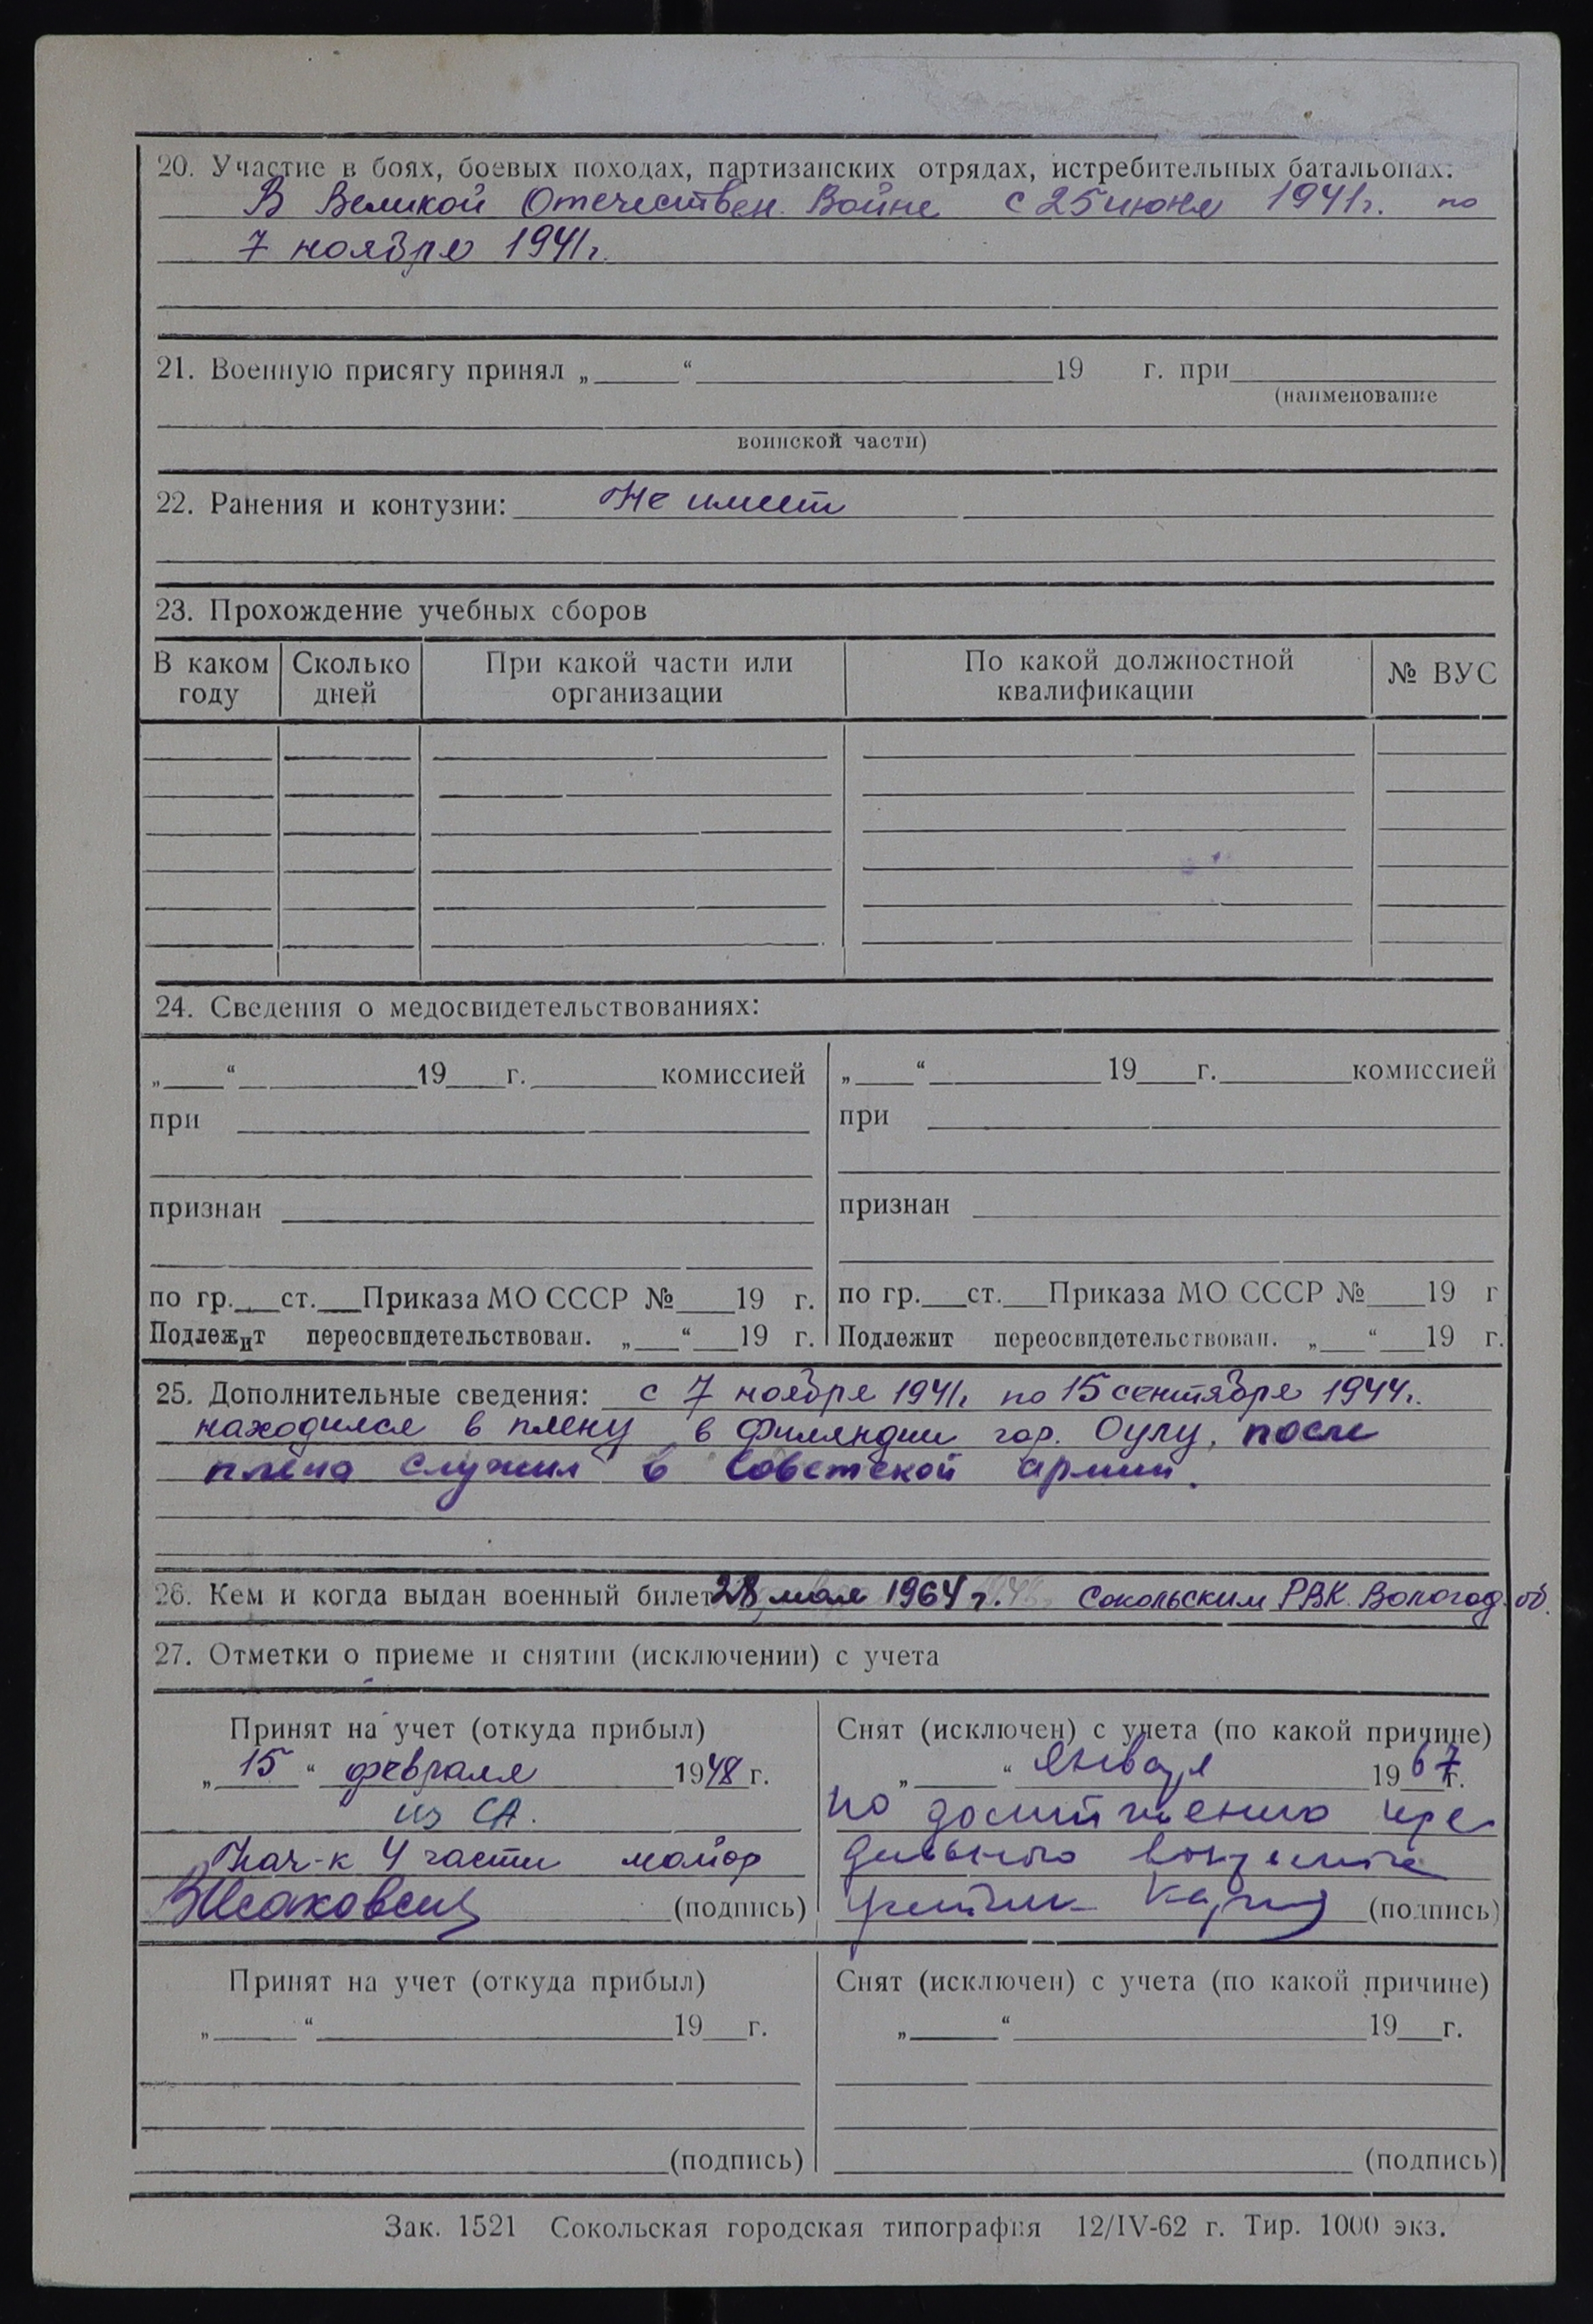 20. Участие в боях, боевых походах, партизанских отрядах, истребительных батальонах:
В Великой Отечествен. Войне с 25 июня 1941г. по
7 ноября 1941г.
21. Военную присягу принял „ “ 19 г. при
(наименование
воинской части)
22. Ранения и контузии: Не имеет
23. Прохождение учебных сборов
В каком году Сколько дней При какой части или организации По какой должностной квалификации № ВУС
24. Сведения о медосвидетельствованиях:
„ “ 19 г. комиссией
при
признан
по гр. ст. Приказа МО СССР № 19 г.
Подлежит переосвидетельствован. „ “ 19 г.
„ “ 19 г. комиссией
при
признан
по гр. ст. Приказа МО СССР № 19 г
Подлежит переосвидетельствован. „ “ 19 г.
25. Дополнительные сведения: с 7 ноября 1941г. по 15 сентября 1944г.
находился в плену в Финляндии гор. Оулу, после
плена служил в Советской армии.
26. Кем и когда выдан военный билет 28 мая 1964 г. Сокольским РВК Вологод. об.
27. Отметки о приеме и снятии (исключении) с учета
Принят на учет (откуда прибыл)
„ 15 “ февраля 1948 г.
из СА.
Нач-к 4 части майор
(подпись)
Снят (исключен) с учета (по какой причине)
„ “ января 1967 г.
по достижению пре
дельного возраста
(подпись)
Принят на учет (откуда прибыл)
„ “ 19 г.
(подпись)
Снят (исключен) с учета (по какой причине)
„ “ 19 г.
(подпись)
Зак. 1521 Сокольская городская типография 12/IV-62 г. Тир. 1000 экз.